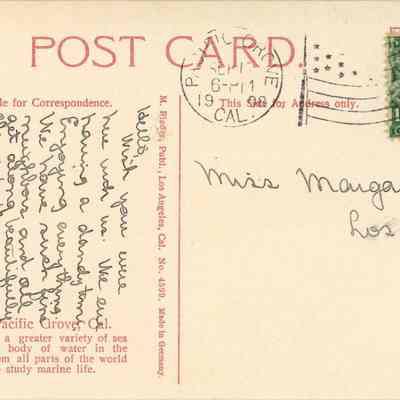 POST CARD.
PACIFIC GROVE
SEP
6-PM
1908
CAL.
le for Correspondence.
This Side for Address only.
Hello,
Wish you were
here with us. We are
having a dandy time
Enjoying everything
We have such fine
neighbors and all
get along beautifully
M. Rieder, Publ., Los Angeles, Cal. No. 4599. Made in Germany.
Miss Marga
Los
Pacific Grove, Cal.
a greater variety of sea
body of water in the
om all parts of the world
o study marine life.